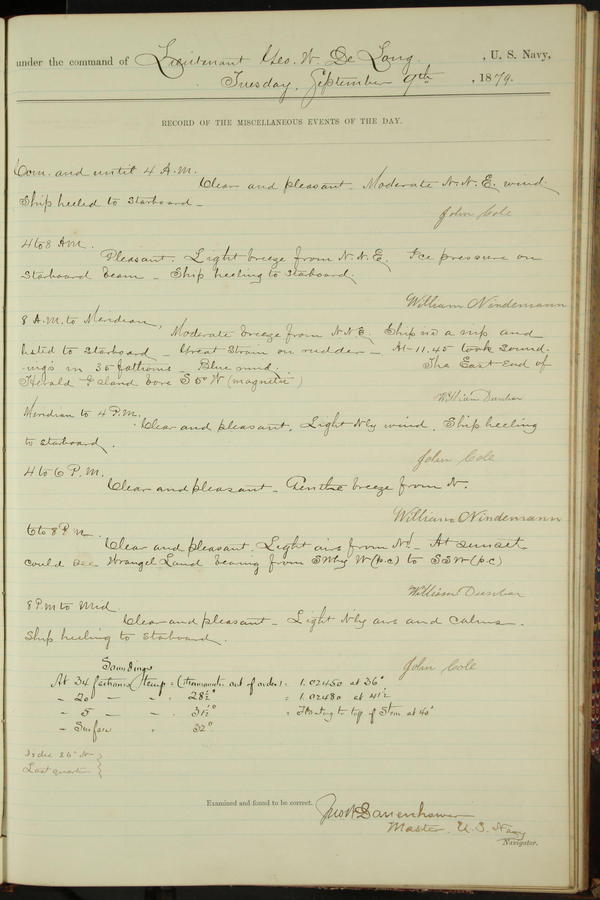 under the command of Lieutenant Geo. W. De Long. , U. S. Navy,
Tuesday, September 9th , 1879.
RECORD OF THE MISCELLANEOUS EVENTS OF THE DAY.
Com. and until 4 A.M.
Clear and pleasant. Moderate N.N.E. wind.
Ship heeled to starboard -
John Cole
4 to 8 AM.
Pleasant. Light breeze from N.N.E. Ice pressure on
starboard beam - Ship heeling to staboard.
William Nindemann
8 A.M. to Meridian,
Moderate breeze from N.N.E. Ship in a nip and
listed to starboard - Great strain on rudder - At 11.45 took sound-
ings in 35 fathoms Blue mud. The East End of
Herald Island bore S 5° W (magnetic)
William Dunbar
Meridian to 4 P.M.
Clear and pleasant. Light Nly wind. Ship heeling
to starboard.
John Cole
4 to 6 P.M.
Clear and pleasant - Gentle breeze from N.
William Nindemann
6 to 8 P.M.
Clear and pleasant. Light airs from Nd. At sunset
could see Wrangel Land bearing from SWby W (p.c) to SSW (p.c)
William Dunbar
8 P.M to Mid.
Clear and pleasant - Light Nly airs and calms.
Ship heeling to starboard.
John Cole
Soundings
At 34 fathoms temp = (thermometer out of order) = 1.02450 at 36°
- 20 - - 28½° = 1.02480 at 41½
- 5 - - 31½° = Floating to top of Stem at 40°
- Surface " 32°
Last quarter
Examined and found to be correct.
Master, U.S. Navy
Navigator.